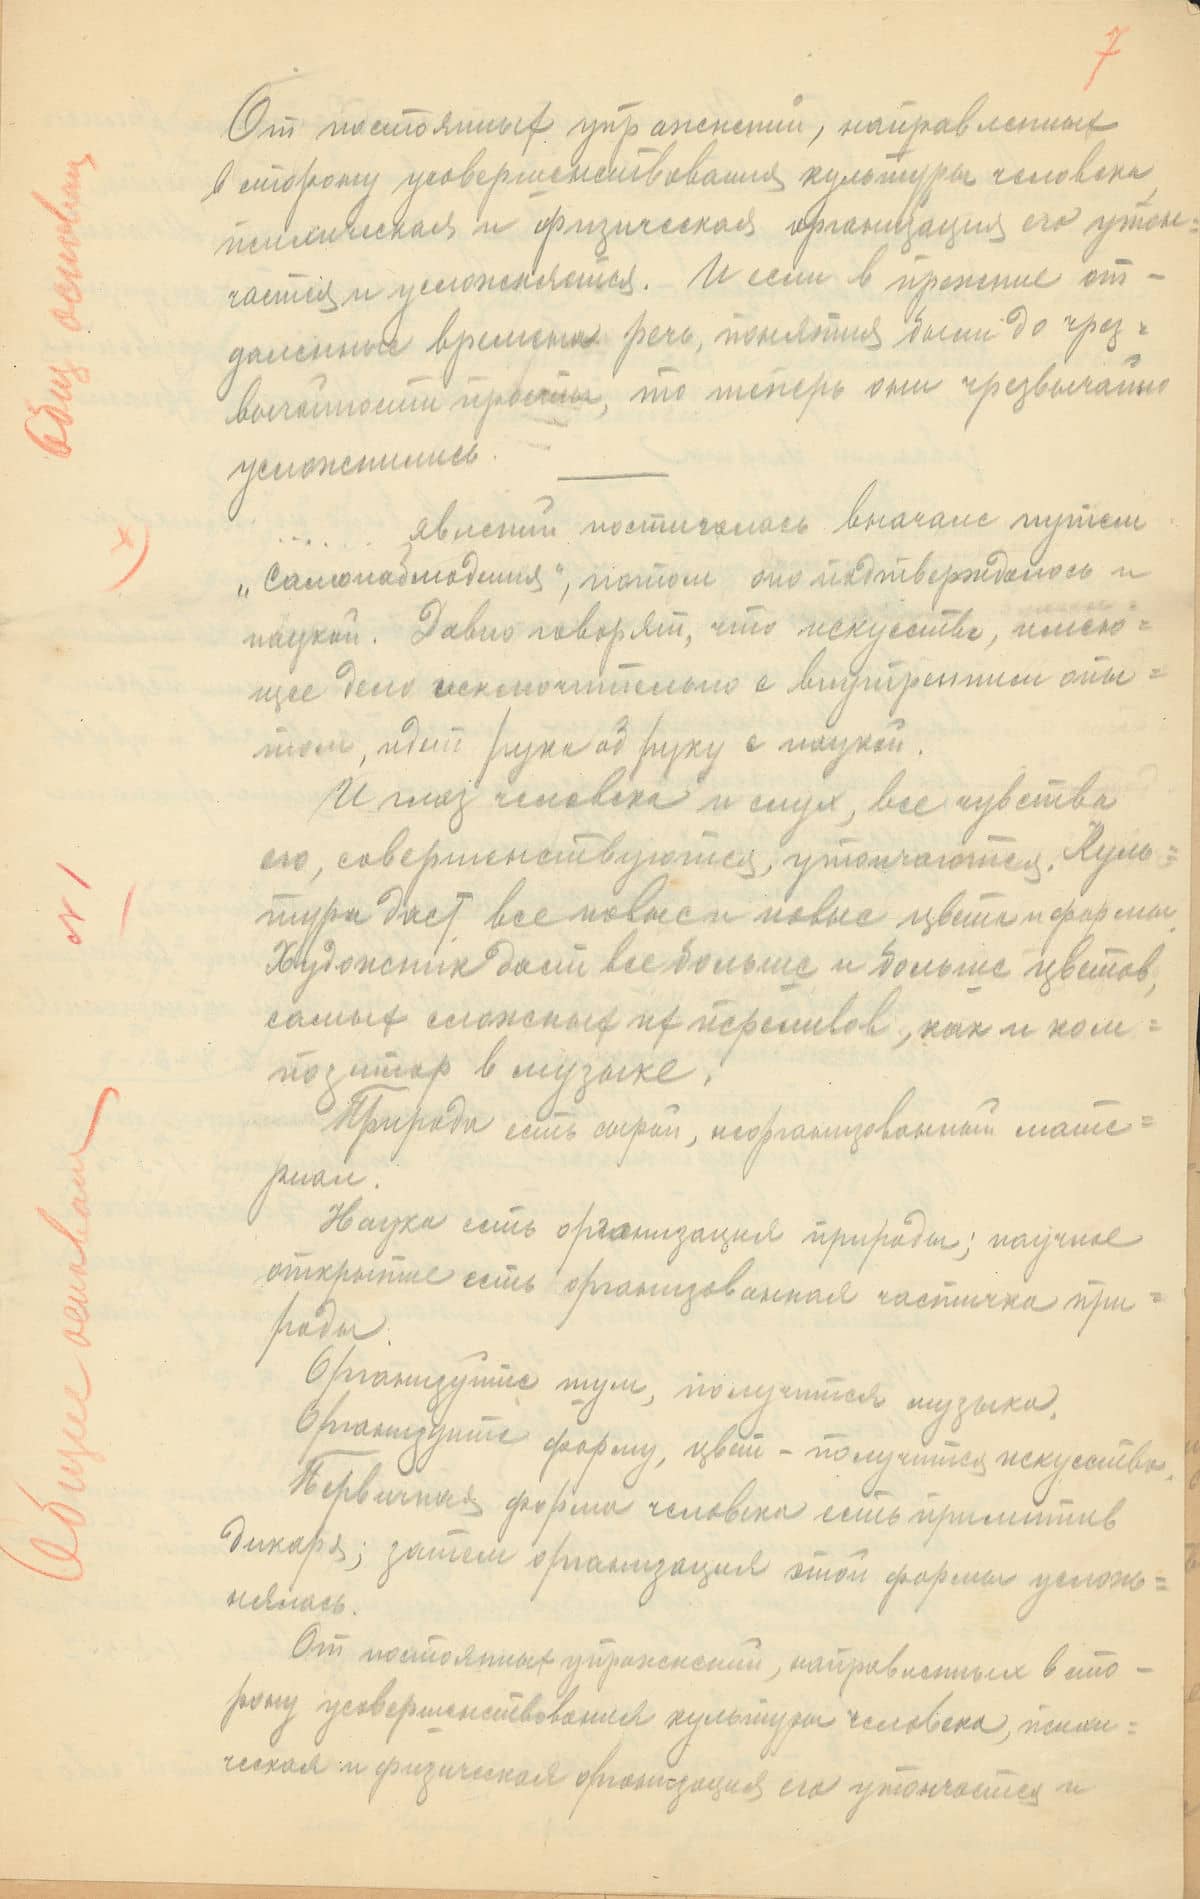 7
От постоянных упражнений, направленных
в сторону усовершенствования культуры человека,
психическая и физическая организация его утон=
чается и усложняется. И если в прежние от-
даленные времена речь, понятия были до чрез=
вычайности просты, то теперь они чрезвычайно
усложнились.
..... явлений постигалась вначале путем
„Самонаблюдения", потом оно подтверждалось и
наукой. Давно говорят, что искусство, имею=
щее дело исключительно с внутренним опы=
том, идет рука об руку с наукой.
И глаз человека и слух, все чувства
его, совершенствуются, утончаются. Куль=
тура даст все новые и новые цвета и формы.
Художник даст все больше и больше цветов,
самых сложных их переливов, как и ком=
позитор в музыке.
Природа есть сырой, неорганизованный мате=
риал.
Наука есть организация природы; научное
открытие есть организованная частичка при=
роды.
Организуйте шум, получится музыка.
Организуйте форму, цвет - получится искусство.
Первичная форма человека есть примитив
дикаря; затем организация этой формы услож=
нялась.
От постоянных упражнений, направленных в сто-
рону усовершенствования культуры человека, психи=
ческая и физическая организация его утончается и
Общ основан
х)
№ 1
Общее основан